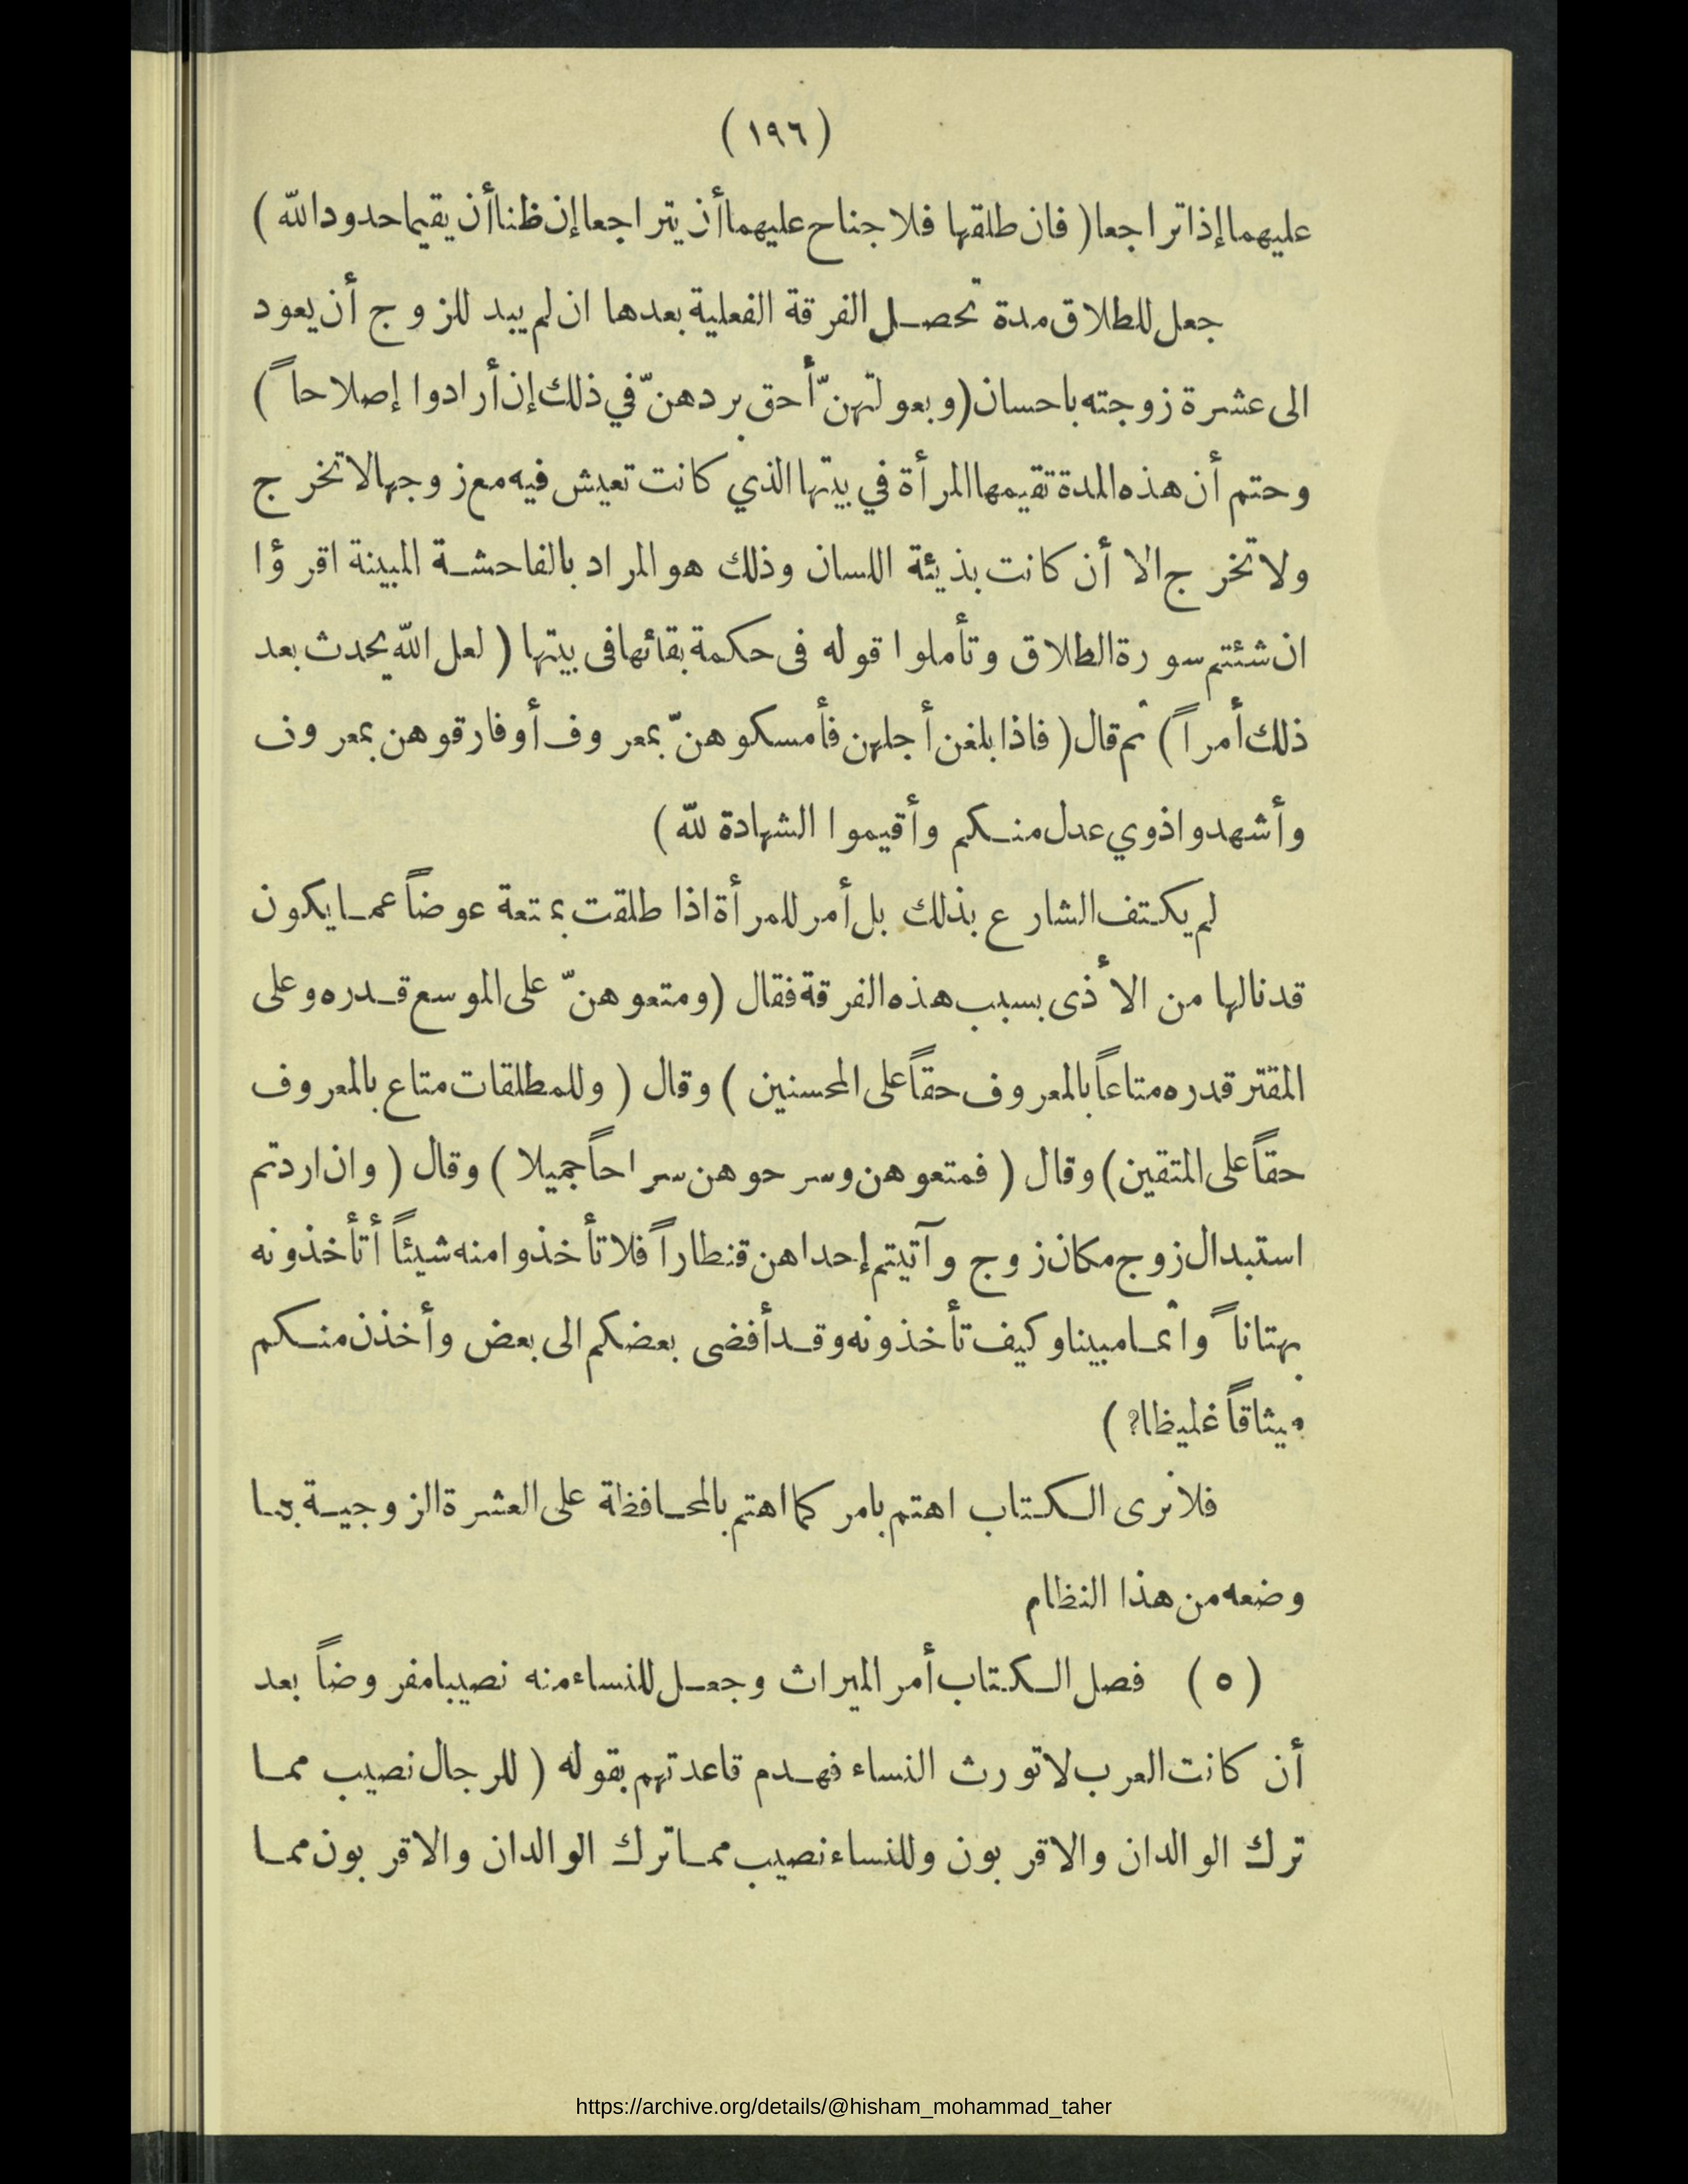 (١٩٦)
عليهما إذا تراجعا (فان طلقها فلا جناح عليهما أن يتراجعا إن ظنا أن يقيما حدود الله)
جعل للطلاق مدة تحصل الفرقة الفعلية بعدها ان لم يبد للزوج أن يعود
الى عشرة زوجته باحسان (وبعولتهنّ أحق بردهنّ في ذلك إن أرادوا إصلاحاً)
وحتم أن هذه المدة تقيمها المرأة في بيتها الذي كانت تعيش فيه مع زوجها لا تخرج
ولا تخرج الا أن كانت بذيئة اللسان وذلك هو المراد بالفاحشة المبينة اقرؤا
ان شئتم سورة الطلاق وتأملوا قوله فى حكمة بقائها فى بيتها (لعل الله يحدث بعد
ذلك أمراً) ثم قال (فاذا بلغن أجلهن فأمسكوهنّ بمعروف أو فارقوهن بمعروف
وأشهدوا ذوي عدل منكم وأقيموا الشهادة لله)
لم يكتف الشارع بذلك بل أمر للمرأة اذا طلقت بمتعة عوضاً عما يكون
قد نالها من الأذى بسبب هذه الفرقة فقال (ومتعوهنّ على الموسع قدره وعلى
المقتر قدره متاعاً بالمعروف حقاً على المحسنين) وقال (وللمطلقات متاع بالمعروف
حقاً على المتقين) وقال (فمتعوهن وسرحوهن سراحاً جميلا) وقال (وان اردتم
استبدال زوج مكان زوج وآتيتم إحداهن قنطاراً فلا تأخذوا منه شيئاً أتأخذونه
بهتاناً واثما مبينا وكيف تأخذونه وقد أفضى بعضكم الى بعض وأخذن منكم
ميثاقاً غليظا؟)
فلا نرى الكتاب اهتم بامر كما اهتم بالمحافظة على العشرة الزوجية بما
وضعه من هذا النظام
(٥) فصل الكتاب أمر الميراث وجعل للنساء منه نصيبا مفروضاً بعد
أن كانت العرب لا تورث النساء فهدم قاعدتهم بقوله (للرجال نصيب مما
ترك الوالدان والاقربون وللنساء نصيب مما ترك الوالدان والاقربون مما
https://archive.org/details/@hisham_mohammad_taher